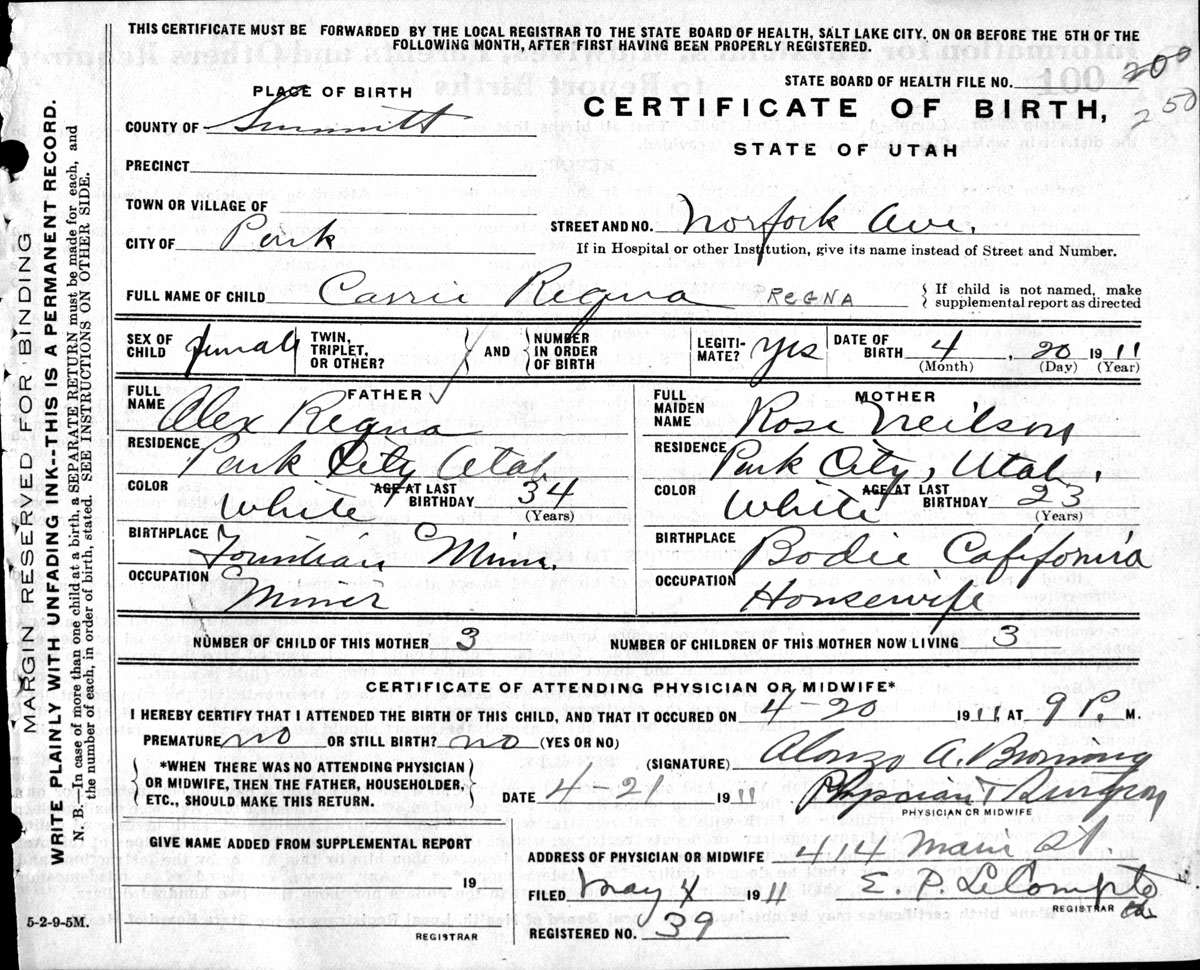 THIS CERTIFICATE MUST BE FORWARDED BY THE LOCAL REGISTRAR TO THE STATE BOARD OF HEALTH, SALT LAKE CITY. ON OR BEFORE THE 5TH OF THE
FOLLOWING MONTH, AFTER FIRST HAVING BEEN PROPERLY REGISTERED.
STATE BOARD OF HEALTH FILE NO. 200
250
PLACE OF BIRTH
CERTIFICATE OF BIRTH,
STATE OF UTAH
COUNTY OF Summitt
PRECINCT
TOWN OR VILLAGE OF
STREET AND NO. Norfork Ave.
CITY OF Park
If in Hospital or other Institution, give its name instead of Street and Number.
FULL NAME OF CHILD Carrie Regna REGNA
If child is not named, make
supplemental report as directed
SEX OF CHILD female
TWIN, TRIPLET, OR OTHER?
AND
NUMBER IN ORDER OF BIRTH
LEGITIMATE? Yes
DATE OF BIRTH 4, 20 1911
(Month) (Day) (Year)
FATHER
FULL NAME Alex Regna
RESIDENCE Park City Utah
COLOR White AGE AT LAST BIRTHDAY 34
(Years)
BIRTHPLACE Fountain Minn.
OCCUPATION Miner
MOTHER
FULL MAIDEN NAME Rose Neilson
RESIDENCE Park City, Utah.
COLOR White AGE AT LAST BIRTHDAY 23
(Years)
BIRTHPLACE Bodie California
OCCUPATION Housewife
NUMBER OF CHILD OF THIS MOTHER 3 NUMBER OF CHILDREN OF THIS MOTHER NOW LIVING 3
CERTIFICATE OF ATTENDING PHYSICIAN OR MIDWIFE*
I HEREBY CERTIFY THAT I ATTENDED THE BIRTH OF THIS CHILD, AND THAT IT OCCURED ON 4 20 1911 AT 9 P. M.
PREMATURE no OR STILL BIRTH? no (YES OR NO)
*WHEN THERE WAS NO ATTENDING PHYSICIAN
OR MIDWIFE, THEN THE FATHER, HOUSEHOLDER,
ETC., SHOULD MAKE THIS RETURN.
(SIGNATURE) Alonzo A. Browning
DATE 4 21 1911 Physician & Surgeon
PHYSICIAN OR MIDWIFE
GIVE NAME ADDED FROM SUPPLEMENTAL REPORT
19
REGISTRAR
ADDRESS OF PHYSICIAN OR MIDWIFE 414 Main St.
FILED May 4 1911 E P LeCompte
REGISTRAR
REGISTERED NO. 39
5-2-9-5M.
MARGIN RESERVED FOR BINDING
WRITE PLAINLY WITH UNFADING INK---THIS IS A PERMANENT RECORD.
N. B.—In case of more than one child at a birth, a SEPARATE RETURN must be made for each, and
the number of each, in order of birth, stated. SEE INSTRUCTIONS ON OTHER SIDE.